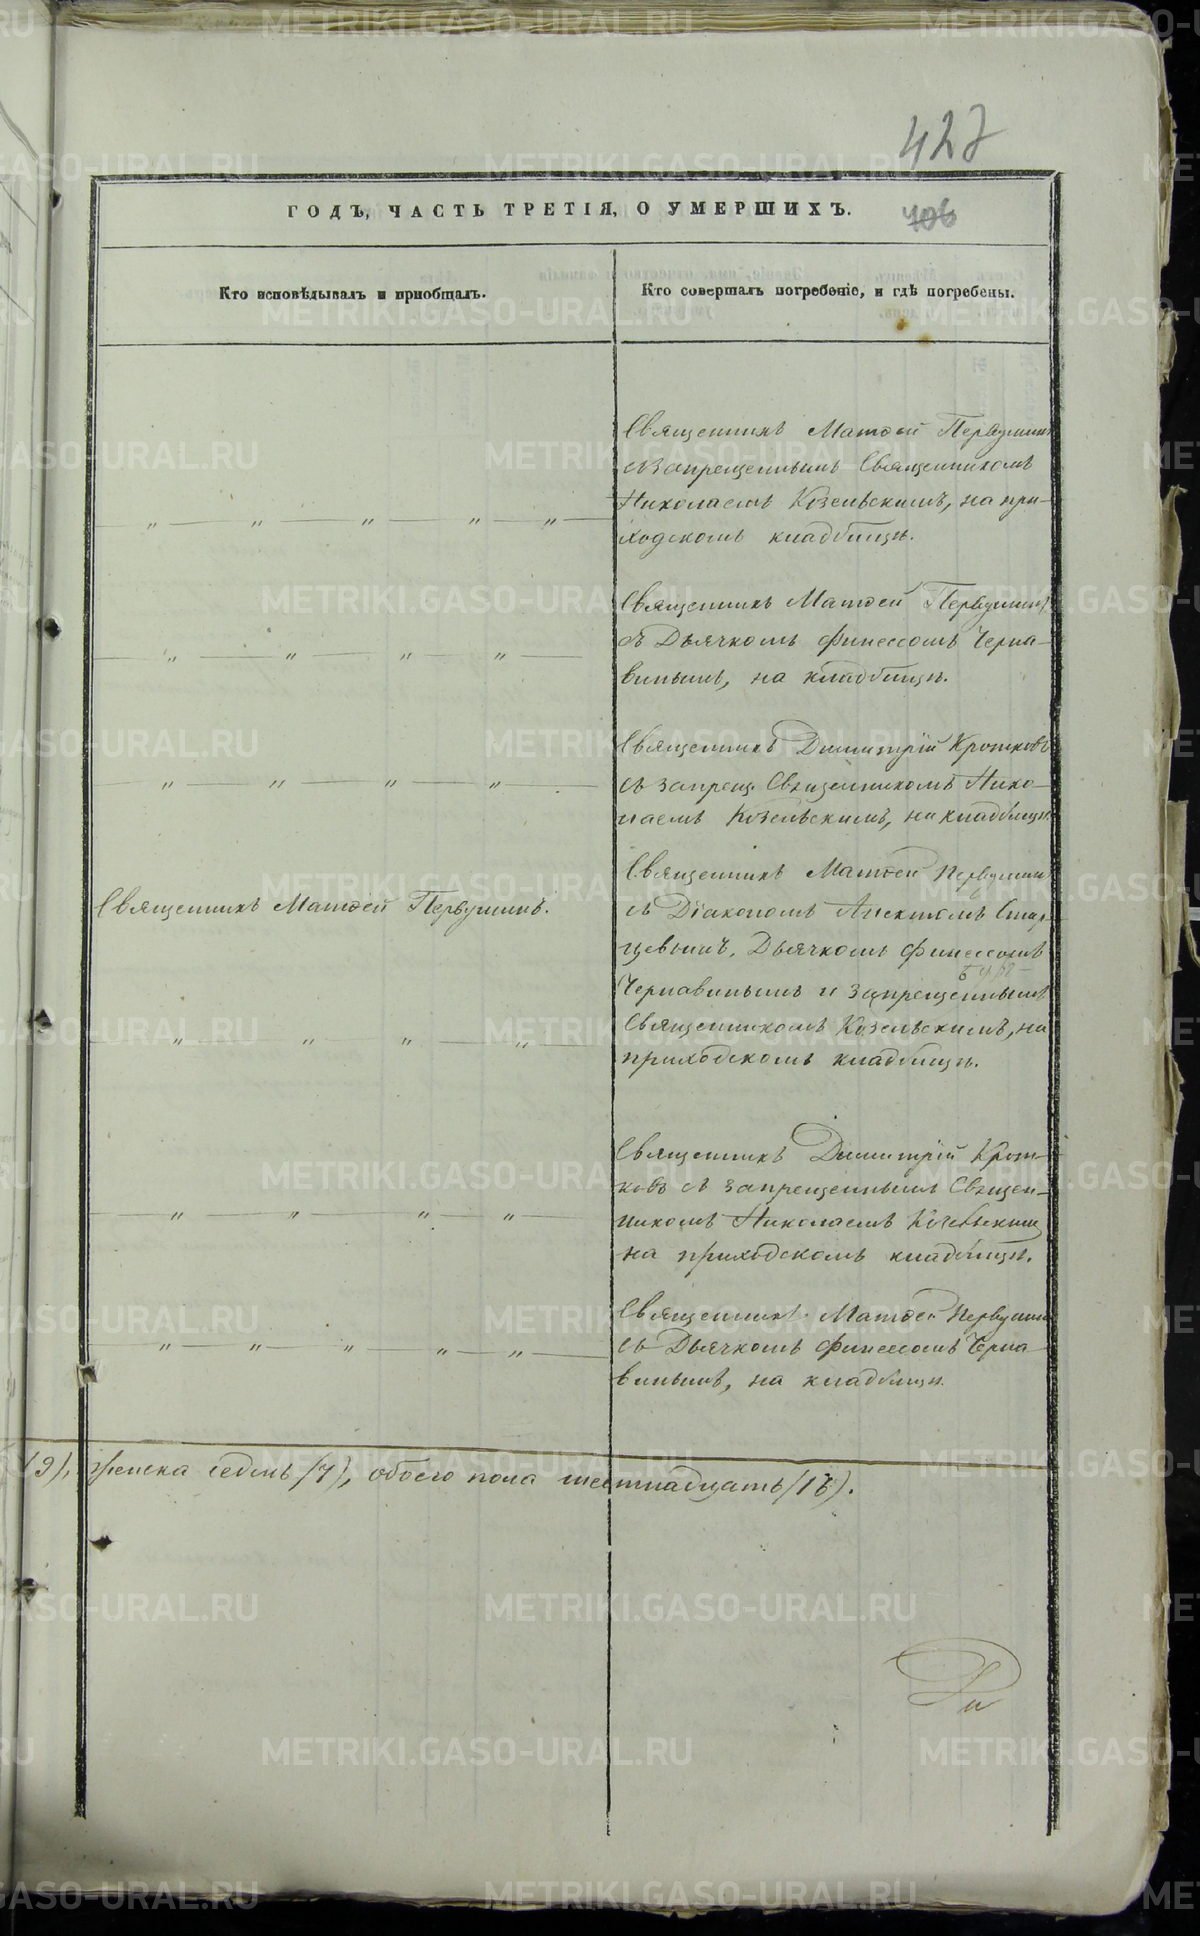 427
ГОДЪ, ЧАСТЬ ТРЕТІЯ, О УМЕРШИХЪ.
406
Кто исповѣдывалъ и пріобщалъ.
Кто совершалъ погребеніе, и гдѣ погребены.
Священникъ Матѳей Первушинъ
съ запрещеннымъ Священникомъ
Николаемъ Козельскимъ, на при-
ходскомъ кладбищѣ.
Священникъ Матѳей Первушинъ
съ Дьячкомъ Финеесомъ Черна-
винымъ, на кладбищѣ.
Священникъ Димитрій Кротковъ
съ запрещ. Священникомъ Нико-
лаемъ Козельскимъ, на кладбищѣ.
Священникъ Матѳей Первушинъ.
Священникъ Матѳей Первушинъ
съ Діакономъ Стар-
цевымъ, Дьячкомъ Финеесомъ
Чернавинымъ и запрещеннымъ
Священникомъ Козельскимъ, на
приходскомъ кладбищѣ.
Священникъ Димитрій Крот-
ковъ съ запрещеннымъ Священ-
никомъ Николаемъ Козельскимъ
на приходскомъ кладбищѣ.
Священникъ Матѳей Первушинъ
съ Дьячкомъ Финеесомъ Черна-
винымъ, на кладбищѣ.
(9), женска седмь (7), обоего пола шестнадцать (16).
METRIKI.GASO-URAL.RU